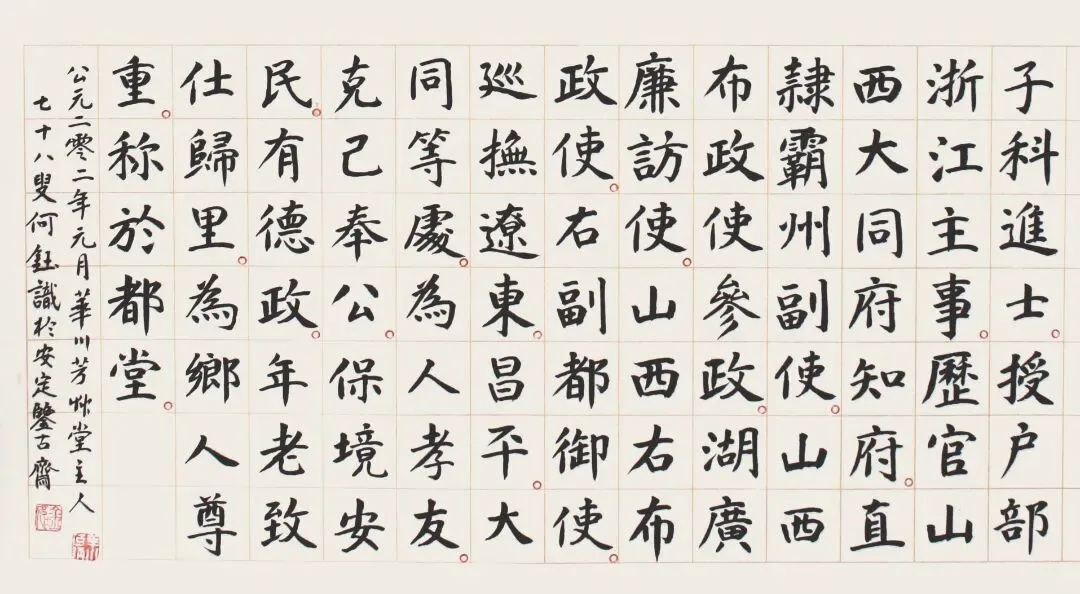 子科進士授户部
浙江主事歷官山
西大同府知府直
隸霸州副使山西
布政使參政湖廣
廉訪使山西右布
政使右副都御使
廵撫遼東昌平大
同等處為人孝友
克己奉公保境安
民有德政年老致
仕歸里為鄉人尊
重称於都堂
公元二零零二年元月華川芳艸堂主人
七十八叟何鈺識於安定鑒古齋